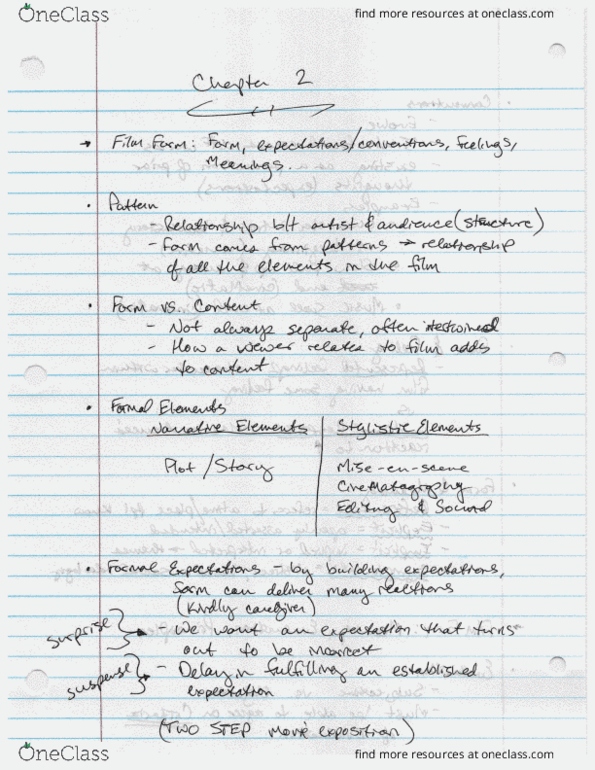 OneClass
find more resources at oneclass.com
Chapter 2
→ Film Form: Form, expectations/conventions, feelings,
Meanings.
• Pattern
- Relationship b/t artist & audience (structure)
- Form comes from patterns → relationship
of all the elements in the film
• Form vs. Content
- Not always separate, often intertwined
- How a viewer relates to film adds
to content
• Formal Elements
Narrative Elements | Stylistic Elements
Plot / Story
Mise-en-scene
Cinematography
Editing & Sound
• Formal Expectations - by building expectations,
form can deliver many reactions
(Kindly caregiver)
surprise
We want an expectation that turns
out to be incorrect
suspense
- Delay in fulfilling an established
expectation
(TWO STEP movie exposition)
OneClass
find more resources at oneclass.com